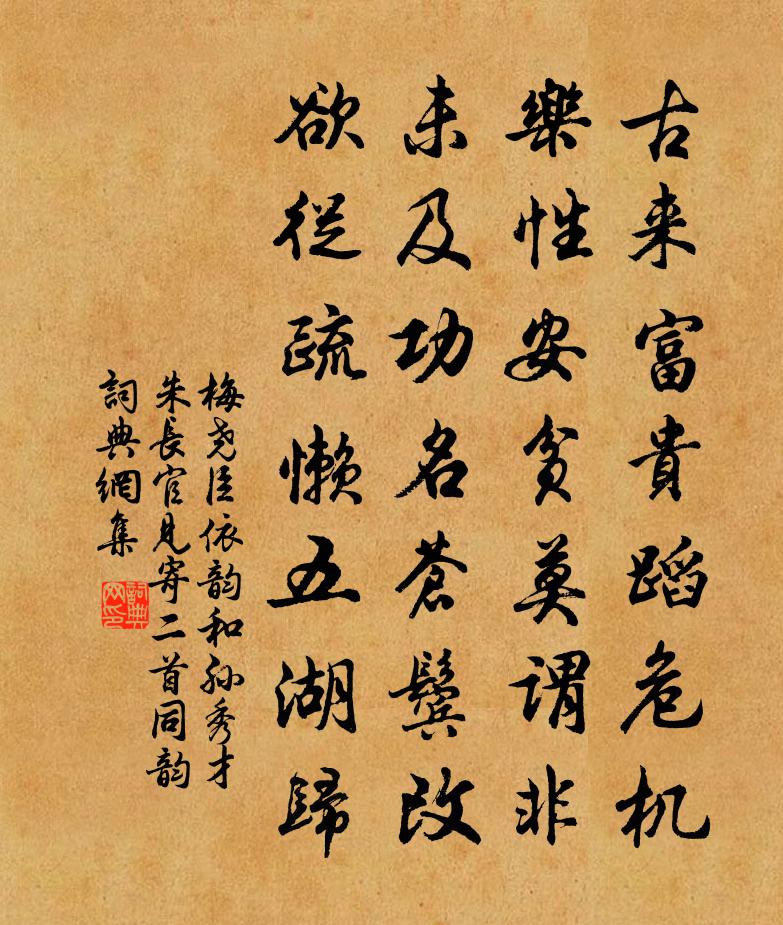 古来富貴蹈危机
樂性安貧莫謂非
未及功名蒼鬢改
欲從疏懶五湖歸
梅尧臣依韵和孙秀才
朱長官見寄二首同韵
詞典網集
詞典
网印